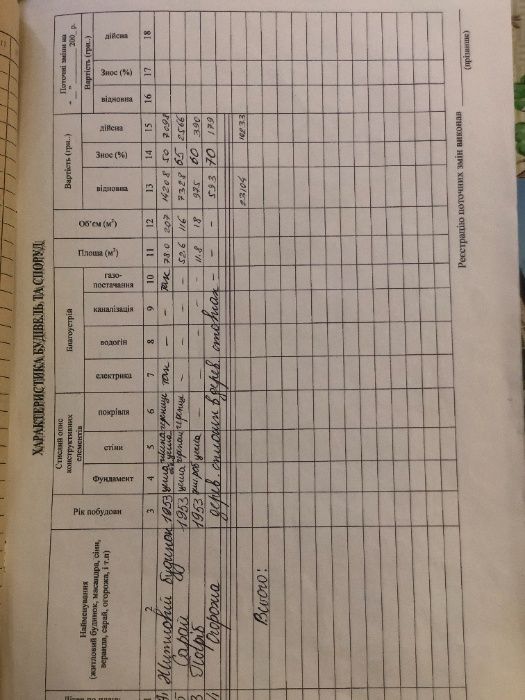 ХАРАКТЕРИСТИКА БУДІВЕЛЬ ТА СПОРУД
Найменування (житловий будинок, мансарда, сіни, веранда, сарай, огорожа, і т.п)
Рік побудови
Стислий опис конструктивних елементів
Фундамент
стіни
покрівля
Благоустрій
електрика
водогін
каналізація
газо-постачання
Площа (м²)
Об'єм (м³)
Вартість (грн..)
відновна
Знос (%)
дійсна
Поточні зміни на
"__" ________ 200_ р.
Вартість (грн..)
відновна
Знос (%)
дійсна
1 2 3 4 5 6 7 8 9 10 11 12 13 14 15 16 17 18
Житловий будинок 1953 цегла черепиця так - - так 78.0 207 14208 50 7098
Сарай 1953 цегла черепиця - - - - 52.6 116 7328 65 2566
Погріб 1953 цегла - - 11.8 18 975 60 390
Огорожа дерев. - - - 593 70 179
Всього: 23104 10233
Реєстрацію поточних змін виконав
(прізвище)